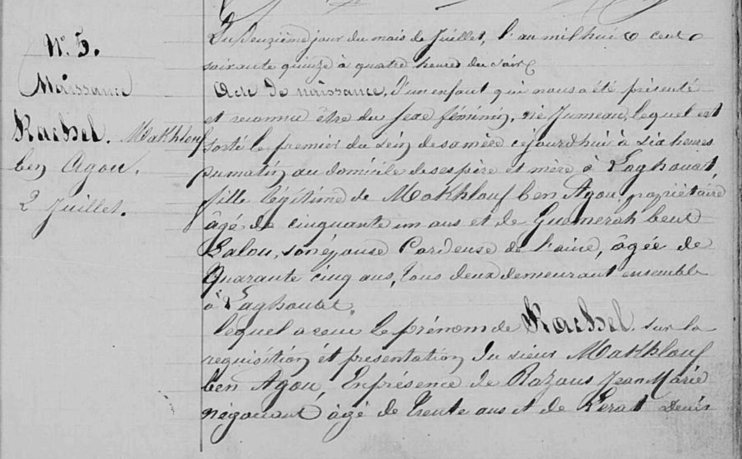 N° 5.
Naissance
Rachel. Makhlouf
ben Agou.
2 Juillet.
Du deuxième jour du mois de Juillet, l'an mil huit cent
soixante quinze à quatre heures du soir
Acte de naissance, d'un enfant qui nous a été présenté
et reconnu être du sexe féminin, né Jumeau, lequel est
sorti le premier du sein de sa mère cejourd'hui à six heures
du matin au domicile de ses père et mère à Laghouat,
fille légitime de Makhlouf ben Agou, propriétaire
âgé de cinquante un ans et de Guemerah bent
Lalou, son épouse Cardeuse de laine, âgée de
Quarante cinq ans, tous deux demeurant ensemble
à Laghouat,
lequel a reçu le prénom de Rachel sur la
requisition et presentation du sieur Makhlouf
ben Agou, En présence de Razous Jean Marie
négociant âgé de trente ans et de Denis